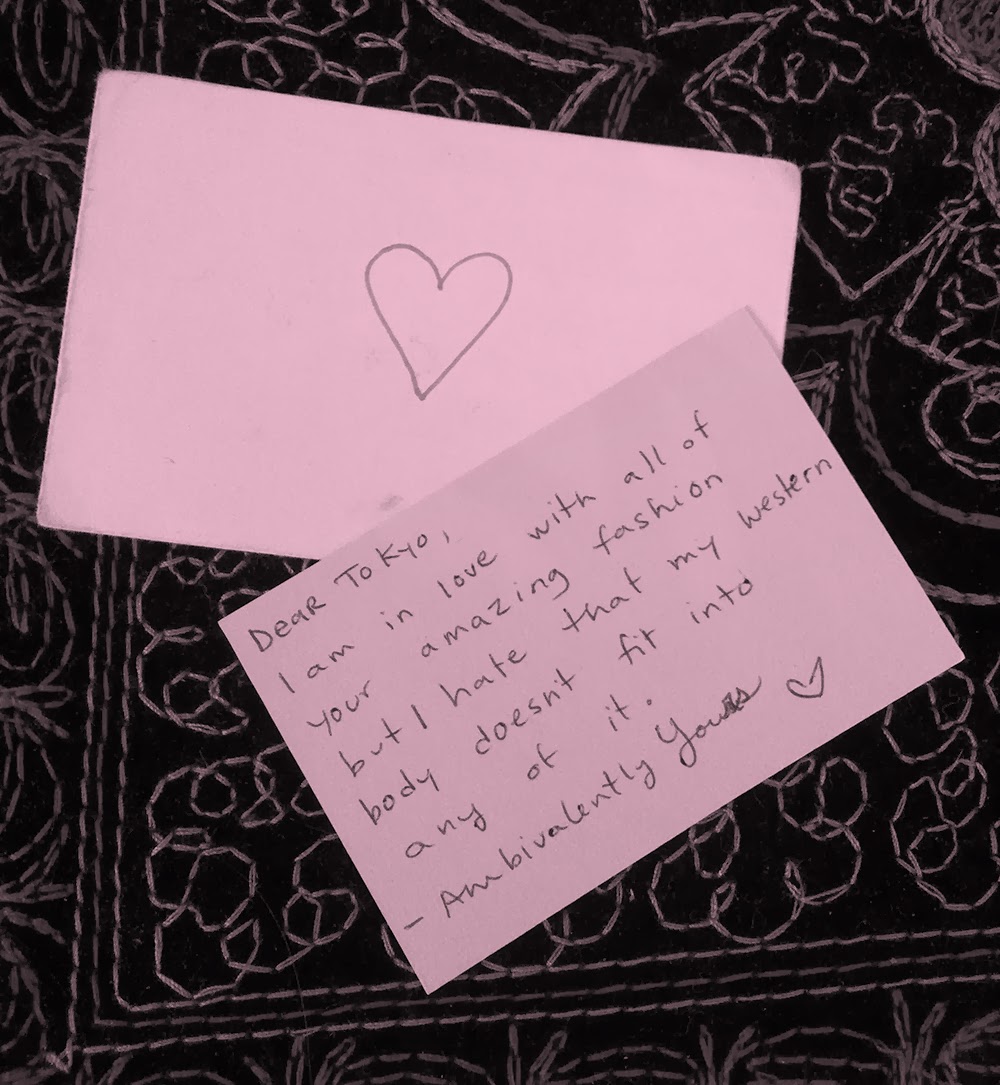 Dear Tokyo,
I am in love with all of
your amazing fashion
but I hate that my western
body doesnt fit into
any of it.
- Ambivalently Yours ♡